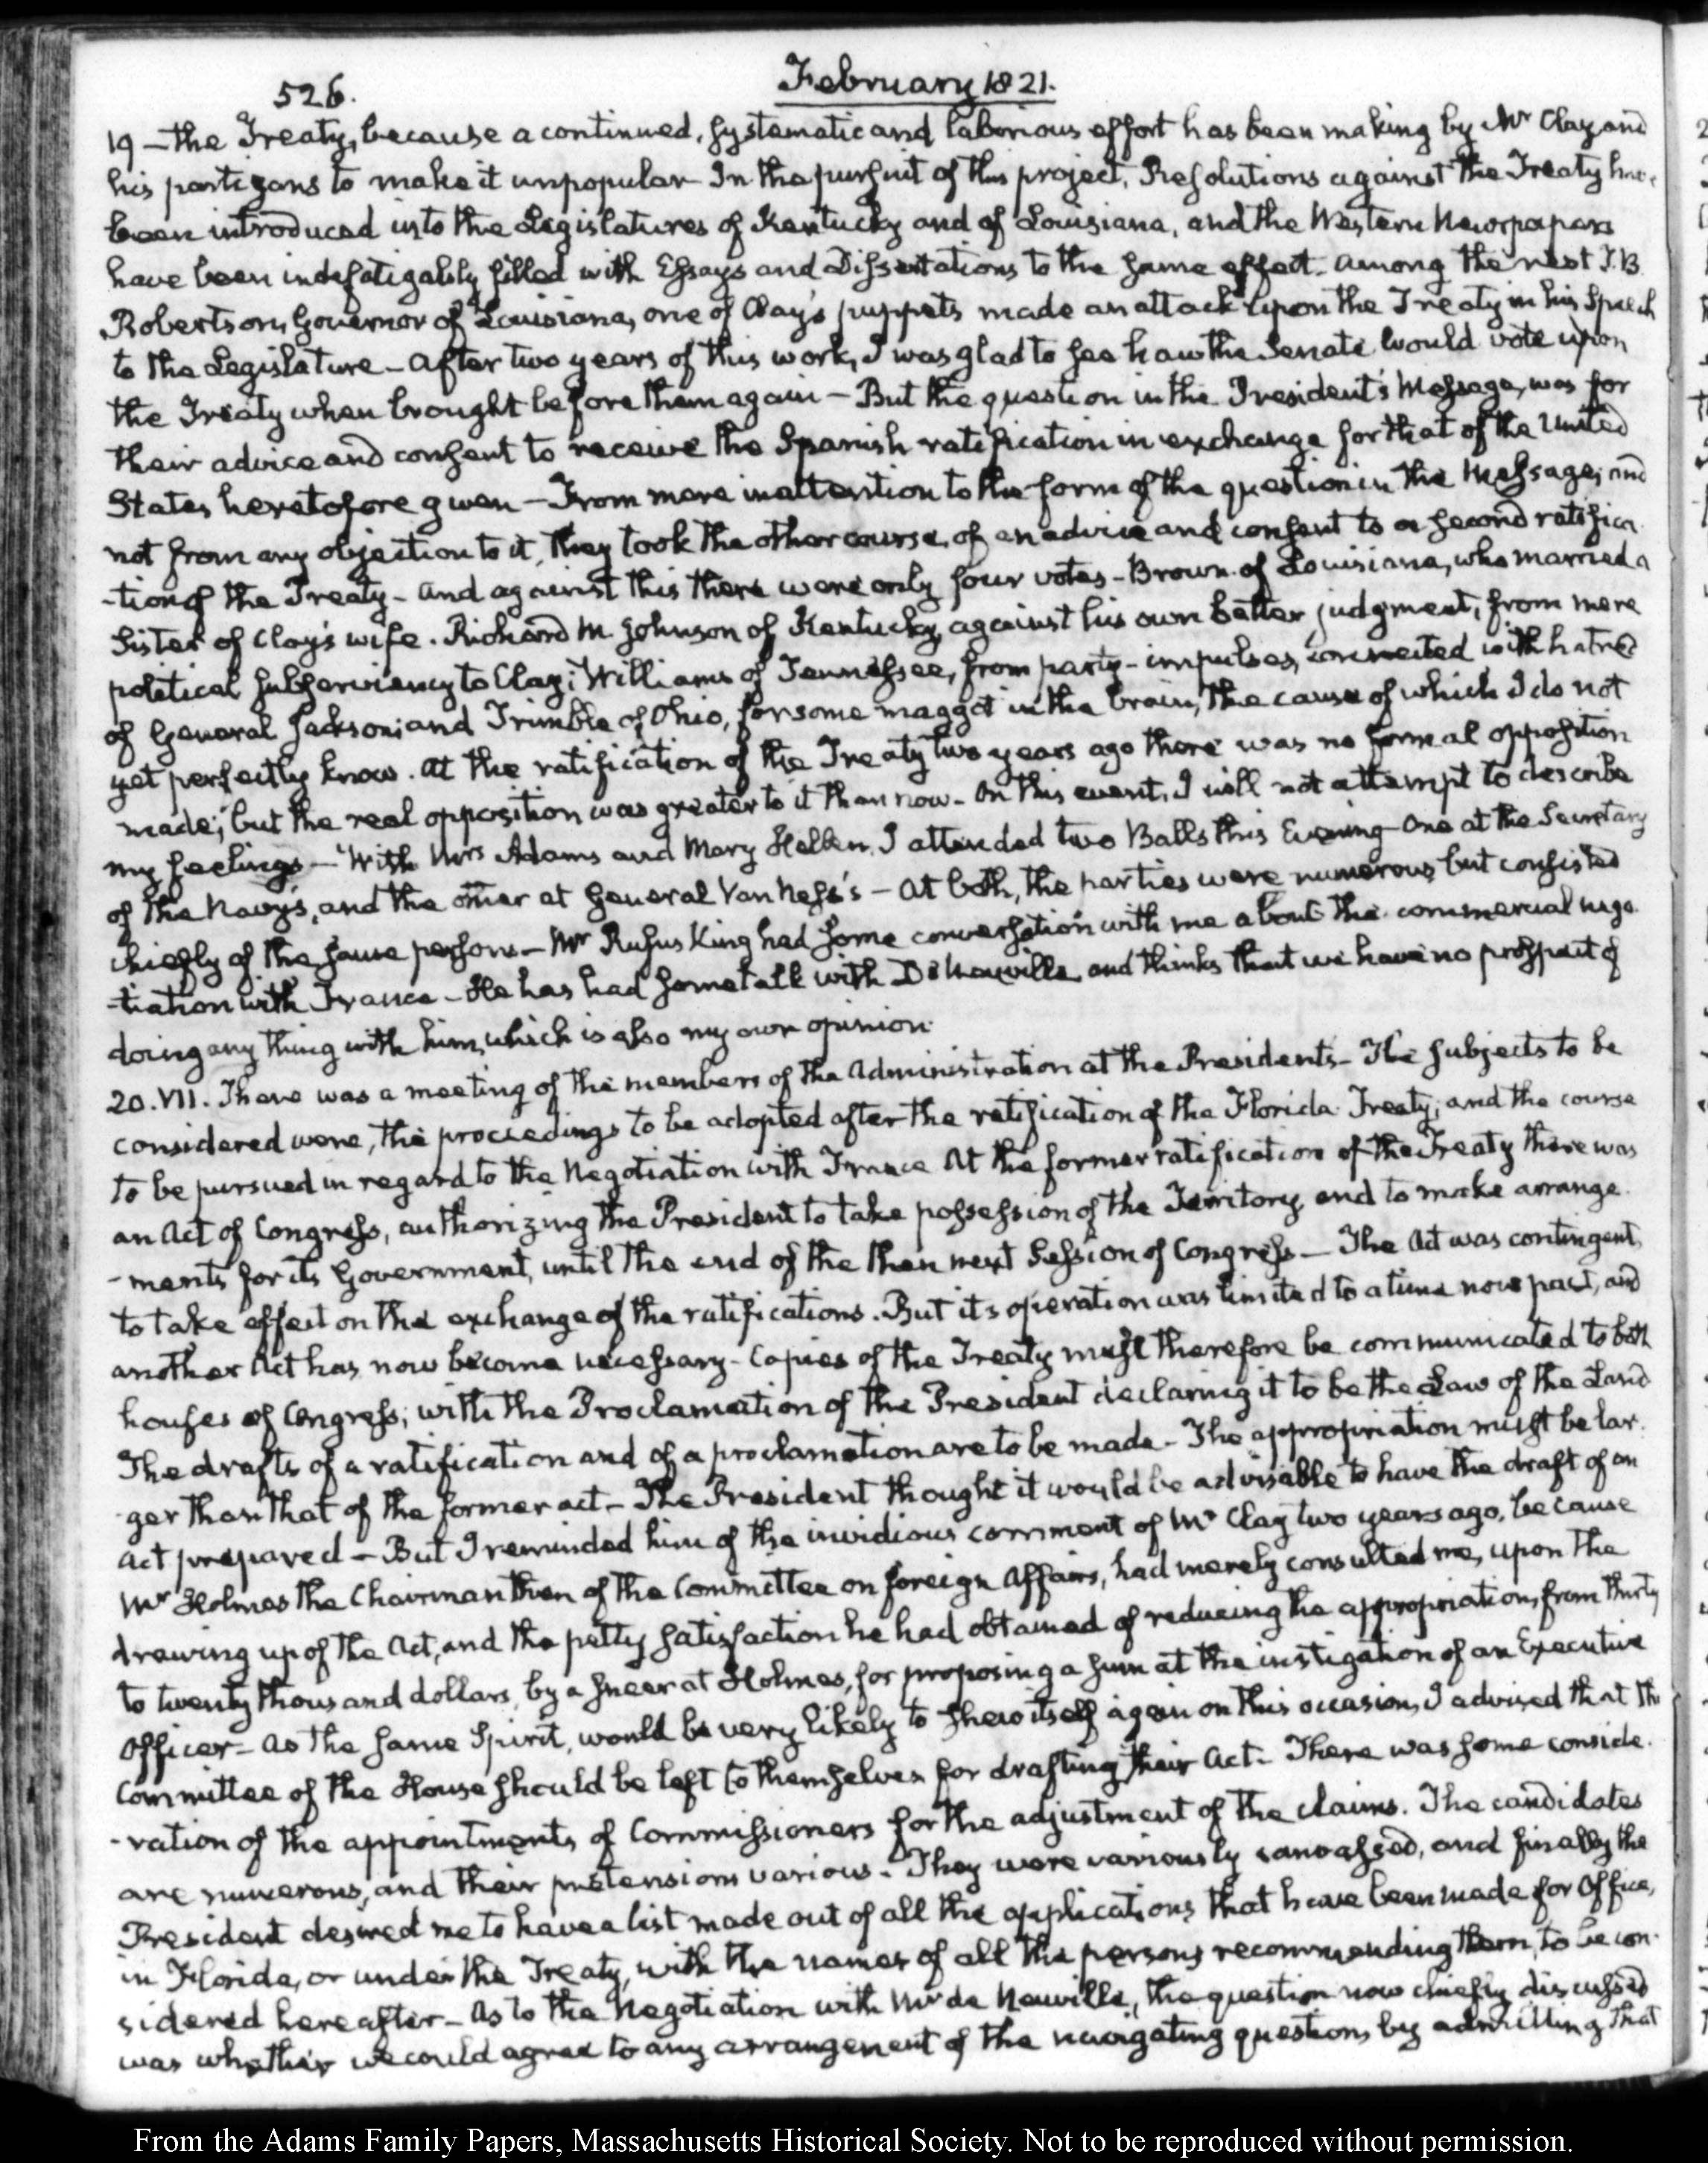 526.
February 1821.
19 — the Treaty, because a continued, systematic and laborious effort has been making by Mr Clay and
his partizans to make it unpopular In the pursuit of this project, Resolutions against the Treaty have
been introduced into the Legislatures of Kentucky and of Louisiana, and the Western Newspapers
have been indefatigably filled with Essays and Dissertations to the same effect. Among the rest T. B.
Robertson, Governor of Louisiana, one of Clay's puppets made an attack upon the Treaty in his Speech
to the Legislature — After two years of this work, I was glad to see how the Senate would vote upon
the Treaty when brought before them again — But the question in the President's Message, was for
their advice and consent to receive the Spanish ratification in exchange for that of the United
States heretofore given — From mere inattention to the form of the question in the Message, and
not from any objection to it, they took the other course, of an advice and consent to a second ratifica
-tion of the Treaty — And against this there were only four votes — Brown of Louisiana, who married a
Sister of Clay's wife. Richard M. Johnson of Kentucky, against his own better judgment, from mere
political subserviency to Clay; Williams of Tennessee, from party-impulses, connected with hatred
of General Jackson; and Trimble of Ohio, for some maggot in the brain, the cause of which I do not
yet perfectly know. At the ratification of the Treaty two years ago there was no formal opposition
made; but the real opposition was greater to it than now — On this event, I will not attempt to describe
my feelings — With Mrs Adams and Mary Hellen, I attended two Balls this Evening — One at the Secretary
of the Navy's, and the other at General Van Ness's — At both, the parties were numerous, but consisted
chiefly of the same persons — Mr Rufus King had some conversation with me about the commercial nego
-tiation with France — He has had some talk with De Neuville, and thinks that we have no prospect of
doing any thing with him, which is also my own opinion.
20. VII. There was a meeting of the members of the Administration at the Presidents — The subjects to be
considered were, the proceedings to be adopted after the ratification of the Florida Treaty; and the course
to be pursued in regard to the Negotiation with France At the former ratification of the Treaty there was
an Act of Congress, authorizing the President to take possession of the Territory, and to make arrange
-ments for its Government, until the end of the then next Session of Congress — The Act was contingent,
to take effect on the exchange of the ratifications. But its operation was limited to a time now past, and
another Act has now become necessary — Copies of the Treaty must therefore be communicated to both
houses of Congress; with the Proclamation of the President declaring it to be the Law of the Land
The drafts of a ratification and of a proclamation are to be made — The appropriation must be lar
-ger than that of the former act — The President thought it would be advisable to have the draft of an
Act prepared — But I reminded him of the invidious comment of Mr Clay two years ago, because
Mr Holmes the Chairman then of the Committee on foreign Affairs, had merely consulted me, upon the
drawing up of the Act, and the petty satisfaction he had obtained of reducing the appropriation, from thirty
to twenty thousand dollars, by a sneer at Holmes, for proposing a sum at the instigation of an Executive
Officer — As the same Spirit, would be very likely to shew itself again on this occasion, I advised that the
Committee of the House should be left to themselves for drafting their Act. There was some conside
-ration of the appointments of Commissioners for the adjustment of the claims. The candidates
are numerous, and their pretensions various — They were variously canvassed, and finally the
President desired me to have a list made out of all the applications that have been made for Office,
in Florida, or under the Treaty, with the names of all the persons recommending them, to be con
sidered hereafter — As to the Negotiation with Mr de Neuville, the question now chiefly discussed
was whether we could agree to any arrangement of the navigating question, by admitting that
From the Adams Family Papers, Massachusetts Historical Society. Not to be reproduced without permission.